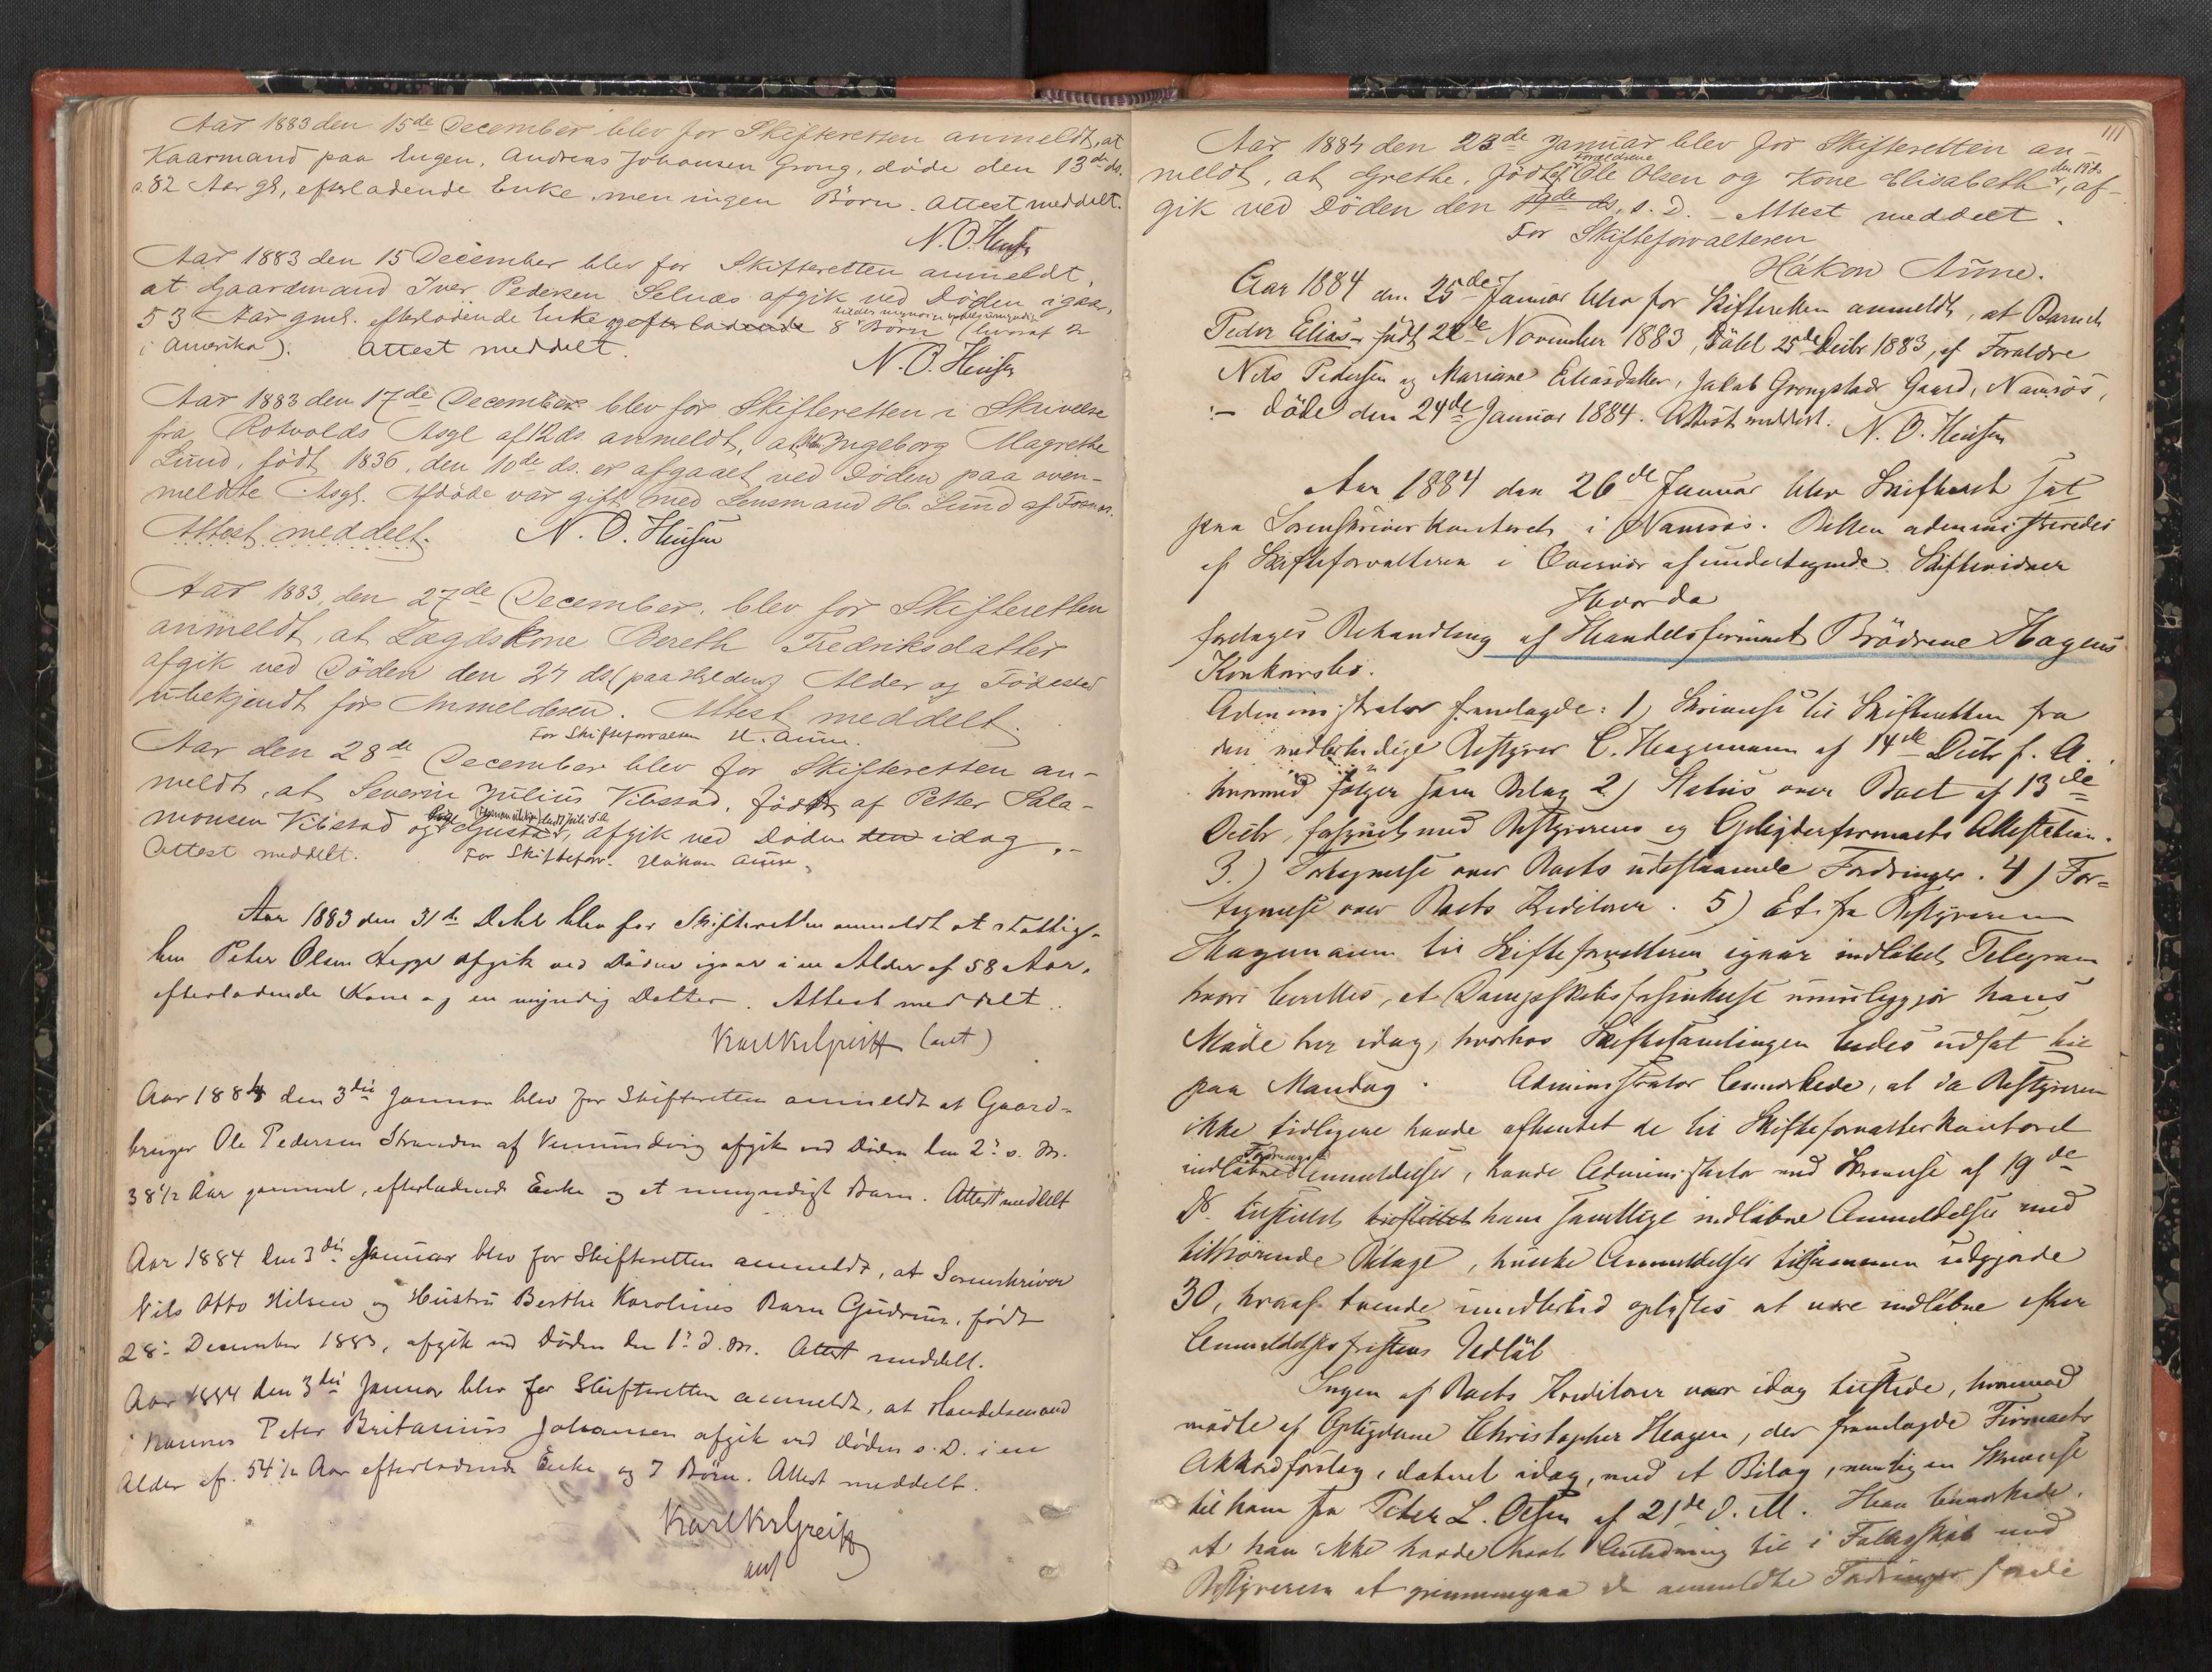 Aar 1883 den 15de December blev for Skifteretten anmeldt, at
Kaarmand paa Engen, Andreas Johansen Grong, døde den 13de ds.
c. 82 Aar gl, efterladende Enke, men ingen Børn. Attest meddelt.
N. O. Hansen
Aar 1883 den 15 December blev for Skifteretten anmeldt,
at Gaardmand Iver Pedersen Selnæs afgik ved Døden igaar,
53 Aar gml. efterladende Enke og efterladende 8 Børn (hvoraf 2
i Amerika). Attest meddelt.
N. O. Hansen
Aar 1883 den 17de December blev for Skifteretten i Skrivelse
fra Rotvolds Asyl af 12 ds. anmeldt, at Ingeborg Magrethe
Lund, født 1836, den 10de ds. er afgaaet ved Døden paa oven-
meldte Asyl. Afdøde var gift med Lensmand H. Lund af Fosnes.
Attest meddelt. N. O. Hansen
Aar 1883, den 27de December, blev for Skifteretten
anmeldt, at Lægdskone Bereth Fredriksdatter
afgik ved Døden den 24 ds (paa Halden) Alder og Fødested
ubekjendt for Anmelderen. Attest meddelt.
For Skifteforvalteren H. Aune.
Aar den 28de December blev for Skifteretten an-
meldt, at Severin Julius Vibstad, født af Petter Sala-
monsen Vibstad og Gusta, afgik ved Døden den idag.-
Attest meddelt. For Skifteforv. Håkon Aune,
Aar 1883 den 31te Debr blev for Skifteretten anmeldt at Fattigs-
lem Peter Olsen Hegge afgik ved Døden igaar i en Alder af 58 Aar,
efterladende Kone og en myndig Datter. Attest meddelt.
Karl Kr Greiff (aut)
Aar 1884 den 3die Januar blev for Skifteretten anmeldt at Gaard-
bruger Ole Pedersen Stranden af Vemundvig afgik ved Døden den 2: s. M.
38 1/2 Aar gammel, efterladende Enke og et umyndigt Barn. Attest meddelt
Aar 1884 den 3die Januar blev for Skifteretten anmeldt, at Sorenskriver
Nils Otto Hilsen og Hustru Berthe Karolines Barn Gudrun, født
28: December 1883, afgik ved Døden den 1: d. M. Attest meddelt.
Aar 1884 den 3die Januar blev for Skifteretten anmeldt, at Handelsmand
i Namsos Peter Britanius Johansen afgik ved Døden s. D. i en
Alder af 54 1/2 Aar efterladende Enke og 7 Børn. Attest meddelt.
Karl Kr Greiff
aut
111
Aar 1884 den 23de Januar blev for Skifteretten an-
Forældrene den 19 ds
meldt, at Grethe, født af Ole Olsen og Kone Elisabeth, af-
gik ved Døden den 19de ds, s. D. - Attest meddelt.
For Skifteforvalteren
Håkon Aune.
Aar 1884 den 25de Januar blev for Skifteretten anmeldt, at Barnet
Peder Elias - født 22de November 1883, Døbt 25de Decbr 1883, af Forældre
Nils Pedersen og Mariane Eliasdatter, Jakob Grongstads Gaard, Namsos,
:- døde den 24de Januar 1884. Attest meddelt. N. O. Hansen
Aar 1884 den 26de Januar blev Skifteret sat
paa Sorenskriverkontoret i Namsos. Retten administreredes
af Skifteforvalteren i Overvær af undertegnede Skiftevidner
Hvorda
foretoges Behandling af Handelsfirmaet Brødrene Hagens
Konkursbo.
Administrator fremlagde: 1) Skrivelse til Skifteretten fra
den midlertidige Bestyrer C. Hagemann af 14de Decbr f. A.
hvormed følger som Bilag 2) Status over Boet af 13de
Decbr, forsynet med Bestyrerens og Opbyderfirmaets Attestation.
3.) Fortegnelse over Boets udestaaende Fordringer. 4) For-
tegnelse over Boets Kreditorer. 5) Et fra Bestyreren
Hagemann til Skifteforvalteren igaar indløbet Telegram
hvori berettes, at Dampskibsforsinkelse umuliggjør hans
Møde her idag, hvorhos Skiftesamlingen bedes udsat til
paa Mandag. Administrator bemærkede, at da Bestyreren
ikke tidligere havde afhentet de til Skifteforvalterkontoret
indløbne Fordringsanmeldelser, havde Administrator med Skrivelse af 19de
ds. tilstillet tilstillet ham samtlige indløbne Anmeldelser med
tilhørende Bilage, hvilke Anmeldelser tilsammen udgjorde
30, hvoraf tvende imidlertid oplystes at være indløbne efter
Anmeldelsesfristens Udløb
Ingen af Boets Kreditorer var idag tilstede, hvorimod
mødte af Opbyderne Christopher Hagen, der fremlagde Firmaets
Akkordforslag, dateret idag, med et Bilag, nemlig en Skrivelse
til ham fra Peter L. Olsen af 21de d. M. Han bemærkede,
at han ikke havde havt Anledning til i Fællesskab med
Bestyreren at gjennemgaa de anmeldte Fordringer